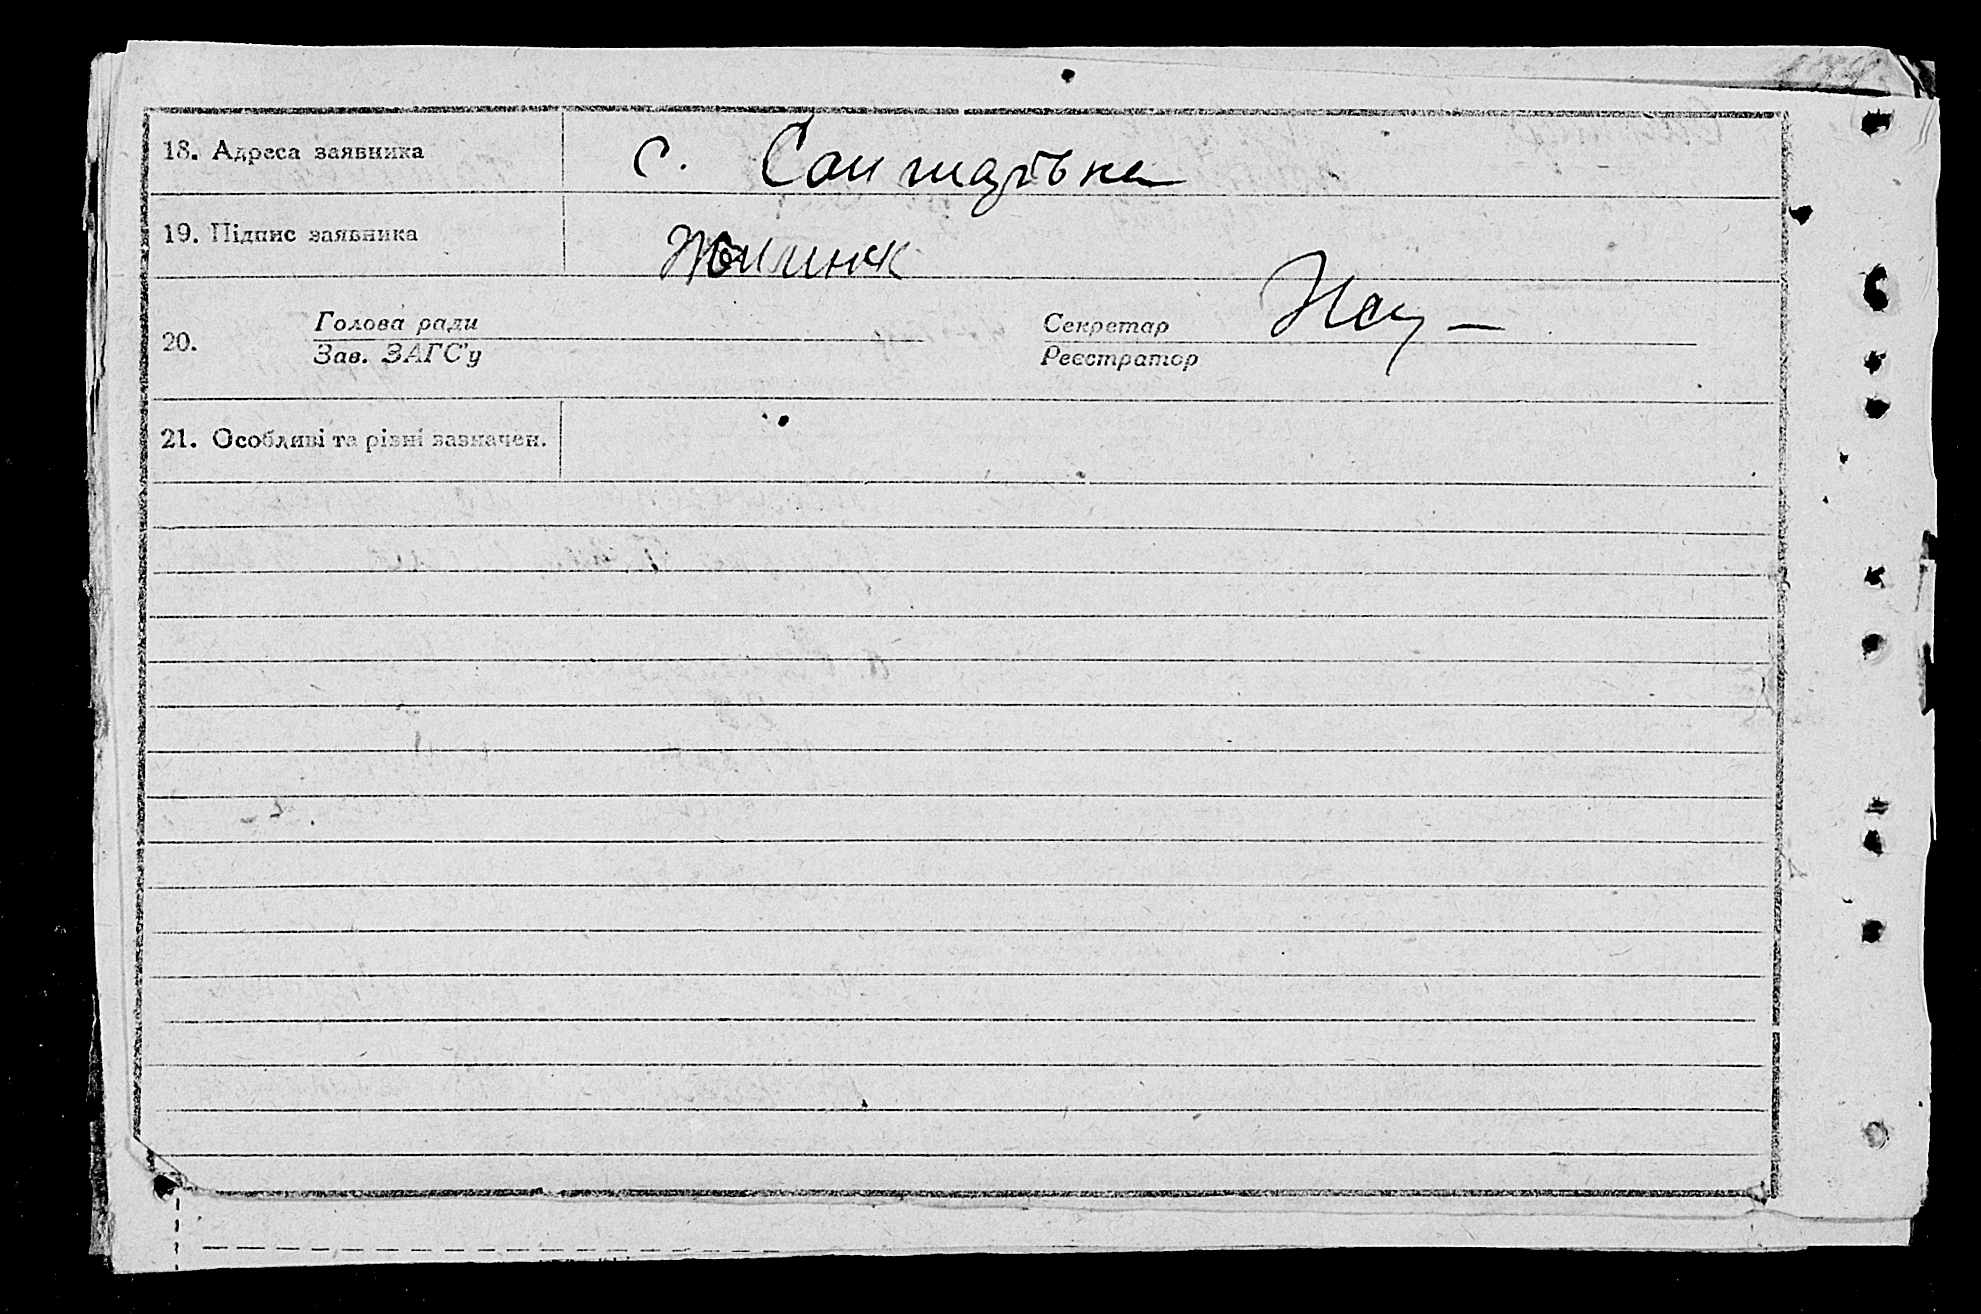 18. Адреса заявника
с. Сонгназівка
19. Підпис заявника
20. Голова ради
Зав. ЗАГС'у
Секретар
Реєстратор
21. Особливі та різні зазначен.